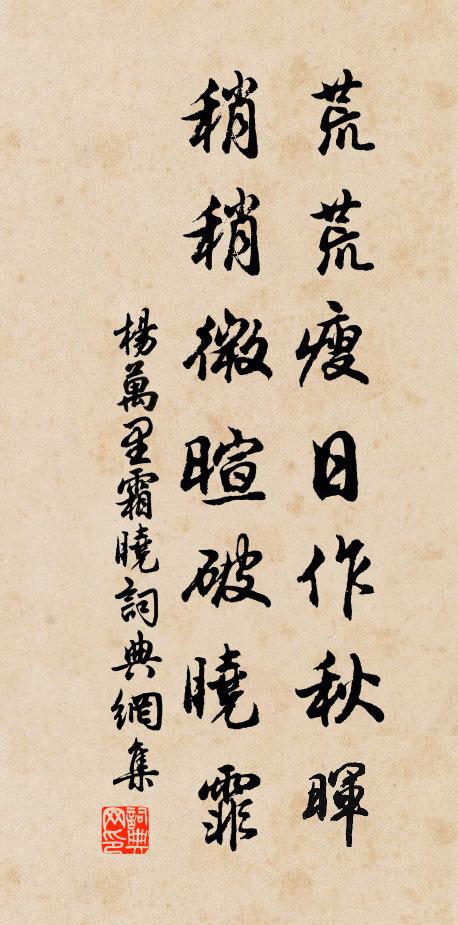 荒荒瘦日作秋暉
稍稍微暄破曉霏
楊萬里霜曉詞典網集
詞典網印